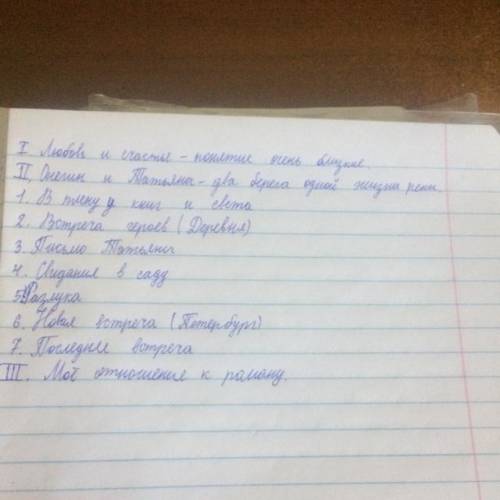 I Любовь и счастье – понятие очень близкие.
II. Онегин и Татьяна – два берега одной жизни реки.
1. В плену у книг и света
2. Встреча героев (Деревня)
3. Письмо Татьяны
4. Свидания в саду
5. Разлука
6. Новая встреча (Петербург)
7. Последняя встреча
III. Моё отношения к роману.